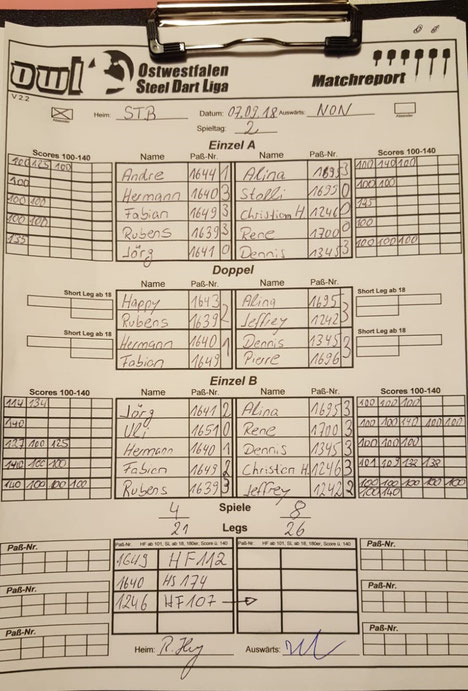 OWL Ostwestfalen
Steel Dart Liga Matchreport
V 2.2
Heim: STB Datum: 07.09.18 Auswärts: NON
Spieltag: 2
Einzel A
Scores 100-140 Name Paß-Nr. Name Paß-Nr. Scores 100-140
100 125 100 Andre 1644 1 Alina 1695 3 100 140 100
100 Hermann 1640 3 Stolli 1695 0 100 100
100 100 Fabian 1649 3 Christian H. 1246 0
100 100 Rubens 1639 3 Rene 1700 0 100
135 Jörg 1641 0 Dennis 1345 3 100 100 100
Doppel
Short Leg ab 18 Name Paß-Nr. Name Paß-Nr. Short Leg ab 18
Happy 1643 2 Alina 1695 3
Rubens 1639 Jeffrey 1242
Short Leg ab 18 Hermann 1640 1 Dennis 1345 3 Short Leg ab 18
Fabian 1649 Pierre 1696
Einzel B
Scores 100-140 Name Paß-Nr. Name Paß-Nr. Scores 100-140
114 134 Jörg 1641 2 Alina 1695 3 100 100 100
140 Uli 1651 0 Rene 1700 3 100 100 140 100 100
127 100 125 Hermann 1640 1 Dennis 1345 3 100 100 100
140 100 100 Fabian 1649 Christian H. 1246 3 101 109 132 138
140 100 100 100 Rubens 1639 3 Jeffrey 1242 2 100 100 100 100 100
100 140
4 Spiele 8
21 Legs 26
Paß-Nr. Paß-Nr. HF ab 101, SL ab 18, 180er, Score ü. 140 Paß-Nr. HF ab 101, SL ab 18, 180er, Score ü. 140 Paß-Nr.
1649 HF 112
Paß-Nr. 1640 HS 174 Paß-Nr.
1246 HF 107 →
Paß-Nr. Paß-Nr.
Heim: Auswärts: